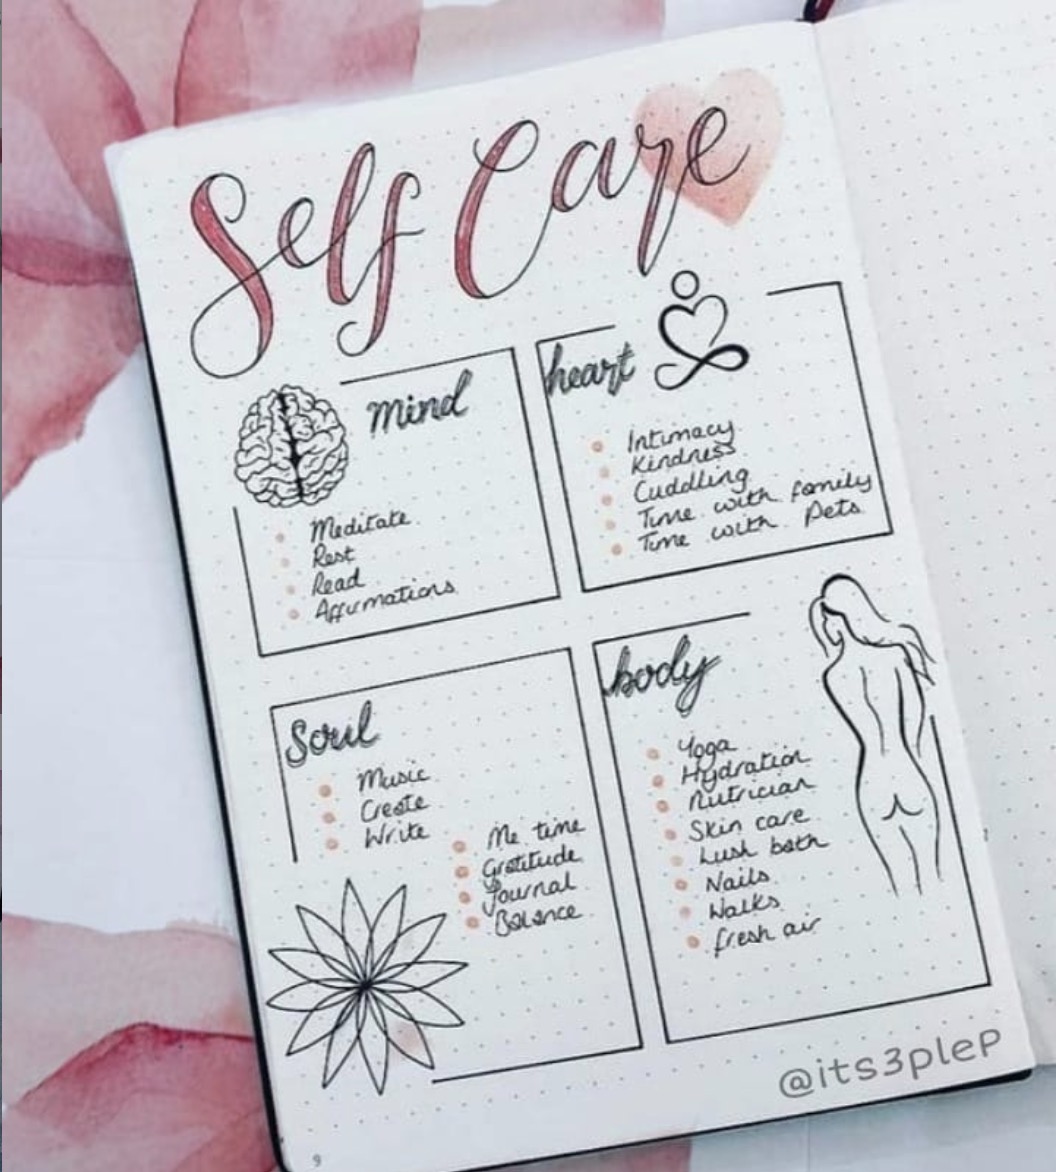 Self Care
mind
Meditate
Rest
Read
Affirmations
heart
Intimacy
Kindness
Cuddling
Time with family
Time with Pets
Soul
Music
Create
Write
Me time
Gratitude
Journal
Balance
body
Yoga
Hydration
Nutrician
Skin care
Lush bath
Nails
Walks
fresh air
@its3pleP
9